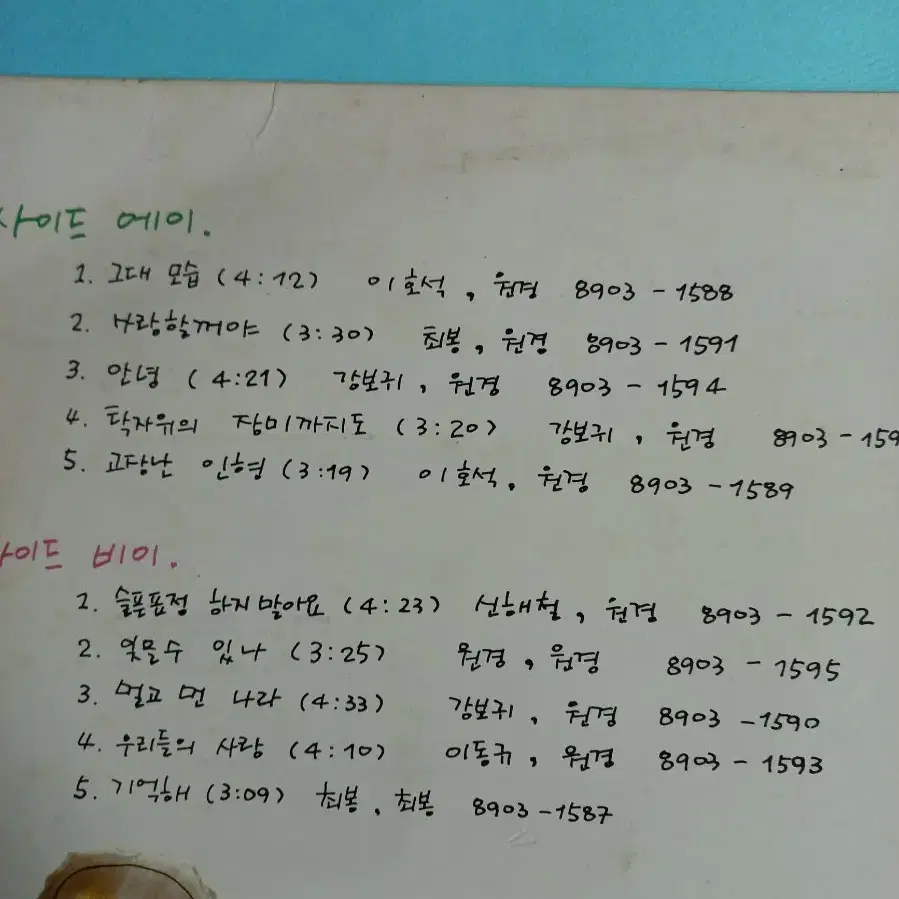 사이드 에이.
1. 그대 모습 (4:12) 이호석, 원경 8903-1588
2. 사랑할꺼야 (3:30) 최봉, 원경 8903-1591
3. 안녕 (4:21) 강보귀, 원경 8903-1594
4. 탁자위의 장미까지도 (3:20) 강보귀, 원경 8903-159
5. 고장난 인형 (3:19) 이호석, 원경 8903-1589
사이드 비이.
1. 슬픈표정 하지말아요 (4:23) 신해철, 원경 8903-1592
2. 잊을수 있나 (3:25) 원경, 원경 8903-1595
3. 멀고 먼 나라 (4:33) 강보귀, 원경 8903-1590
4. 우리들의 사랑 (4:10) 이동규, 원경 8903-1593
5. 기억해 (3:09) 최봉, 최봉 8903-1587